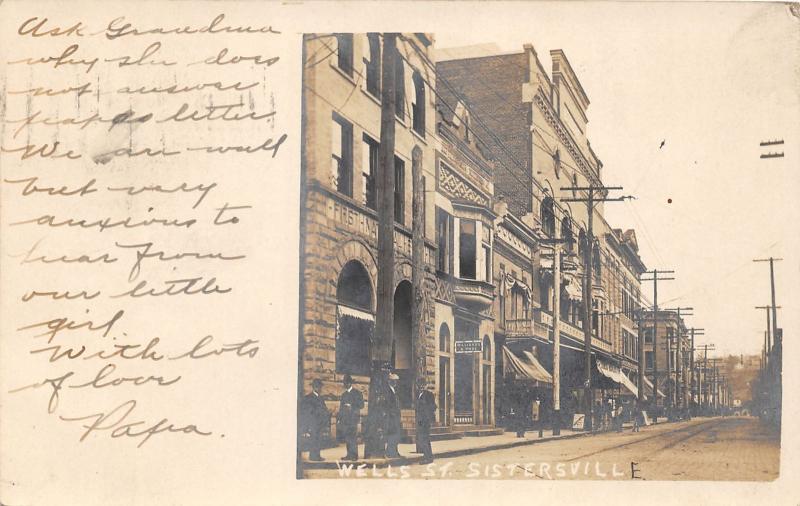 Ask Grandma
why she does
not answer
papas letter.
We are well
but very
anxious to
hear from
our little
girl
With lots
of love
Papa.
FIRST NA
WELLS ST. SISTERSVILLE